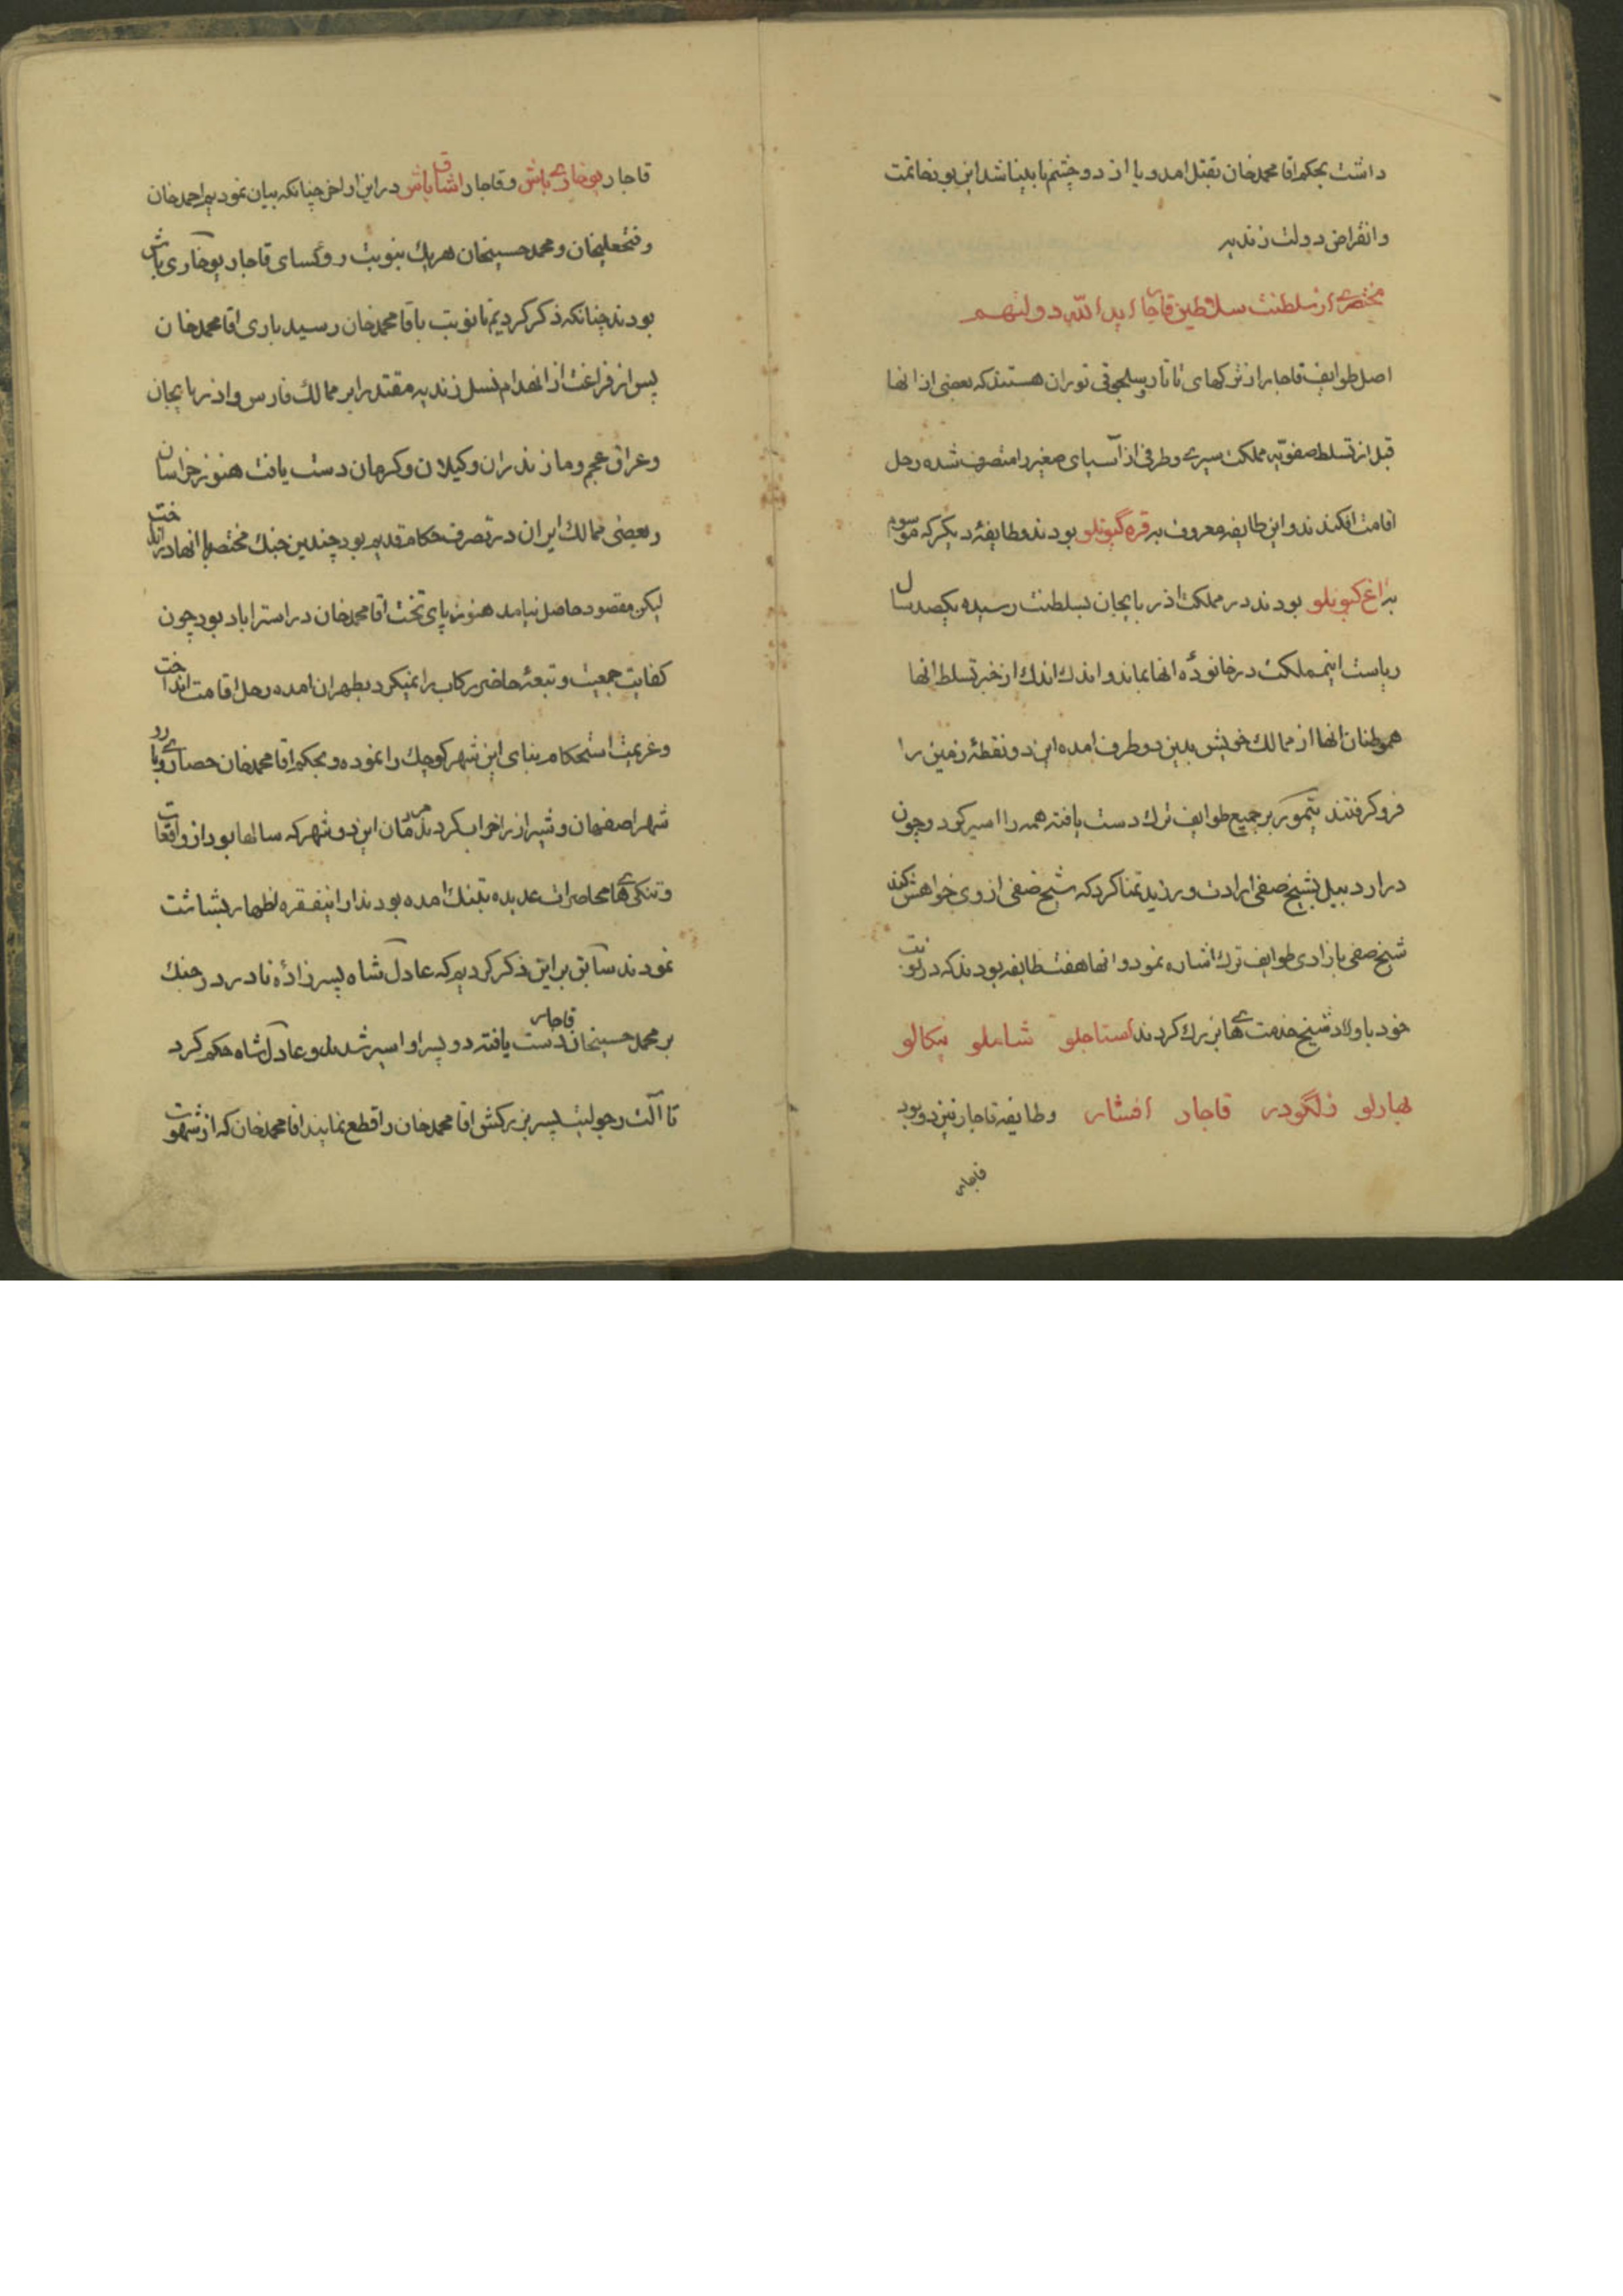 داشت بحکم اقا محمدخان بقتل امد و یا از دو چشم نابینا شد این بود خاتمت
و انقراض دولت زندیه
مختصری از سلطنت سلاطین قاجار اید الله دولتهم
اصل طوایف قاجار از ترکهای تاتار و سلجوقی توران هستند که بعضی از انها
قبل از تسلط صفویه مملکت سیری و طرفی از آسیای صغیر را متصرف شده رحل
اقامت افکندند و این طایفه معروف به قره گیونلو بودند و طایفهٔ دیکر که موسوم
به اغ کیونلو بودند در مملکت اذربایجان بسلطنت رسیده یکصد سال
ریاست اینمملکت در خانودهٔ انها بماند و اندك اندك از خبر تسلط انها
هموطنان انها از ممالك خویش بدین دو طرف امده این دو نقطهٔ زمین را
فرو کرفتند تیمور بر جمیع طوایف ترك دست یافته همه را اسیر کرد و چون
در اردبیل بشیخ صفی ارادت ورزید تمنا کرد که شیخ صفی از وی خواهش کند
شیخ صفی بازادی طوایف ترك اشاره نمود و انها هفت طایفه بودند که در نوبت
خود باولاد شیخ خدمت های بزرك کردند استاجلو شاملو تکالو
بهارلو ذلگودر قاجار افشار و طایفه قاجار نیز دو بود
قاجار
قاجار یوخاری باش و قاجار اشاقا باش در این اواخر چنانکه بیان نمودیم احمدخان
و فتحعلیخان و محمد حسینخان هریك بنوبت روئسای قاجار یوخاری باش
بودند چنانکه ذکر کردیم تا نوبت باقا محمدخان رسید باری اقا محمدخان
پس از فراغت از انهدام نسل زندیه مقتدرا بر ممالك فارس و اذربایجان
و عراق عجم و مازندران و کیلان و کرمان دست یافت هنوز خراسان
و بعضی ممالك ایران در تصرف حکام قدیم بود چندین جنك مختصر با انها در انداخت
لیکن مقصود حاصل نیامد هنوز پای تخت اقا محمدخان در استراباد بود چون
کفایت جمعیت و تبعهٔ حاضر رکاب را نمیکرد بطهران امده رحل اقامت انداخت
و عزیمت استحکام بنای این شهر کوچك را نموده و بحکم اقا محمدخان حصار و باروی
شهر اصفهان و شیراز را خراب کردند مردمان این دو شهر که سالها بود از واقعات
و تنکی های محاصرات عدیده بتنك امده بودند از اینفقره اظهار بشاشت
نمودند سابق بر این ذکر کردیم که عادل شاه پسر زادهٔ نادر در جنك
بر محمد حسینخان قاجار دست یافته دو پسر او اسیر شدند و عادل شاه حکم کرد
تا آلت رجولیت پسر بزرکش اقا محمدخان را قطع نمایند اقا محمدخان که از شهوت